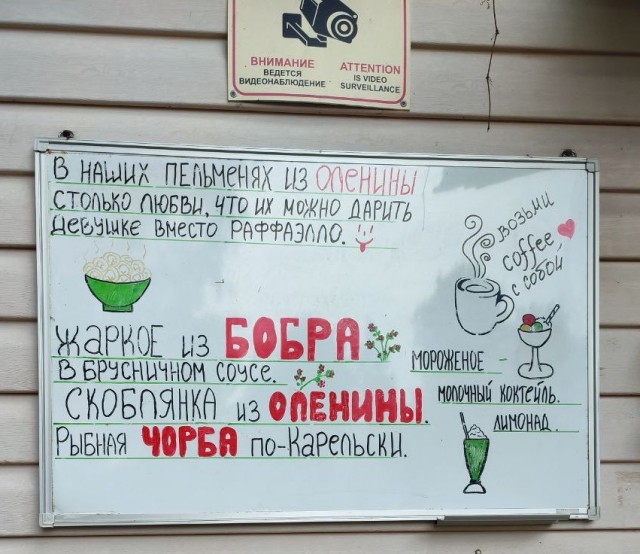 ВНИМАНИЕ
ВЕДЕТСЯ
ВИДЕОНАБЛЮДЕНИЕ
ATTENTION
IS VIDEO
SURVEILLANCE
В НАШИХ ПЕЛЬМЕНЯХ ИЗ ОЛЕНИНЫ
СТОЛЬКО ЛЮБВИ, ЧТО ИХ МОЖНО ДАРИТЬ
ДЕВУШКЕ ВМЕСТО РАФФАЭЛЛО.
ВОЗЬМИ
coffee
С СОБОЙ
ЖАРКОЕ ИЗ БОБРА
В БРУСНИЧНОМ СОУСЕ.
СКОБЛЯНКА ИЗ ОЛЕНИНЫ.
РЫБНАЯ ЧОРБА ПО-КАРЕЛЬСКИ.
МОРОЖЕНОЕ -
МОЛОЧНЫЙ КОКТЕЙЛЬ.
ЛИМОНАД.